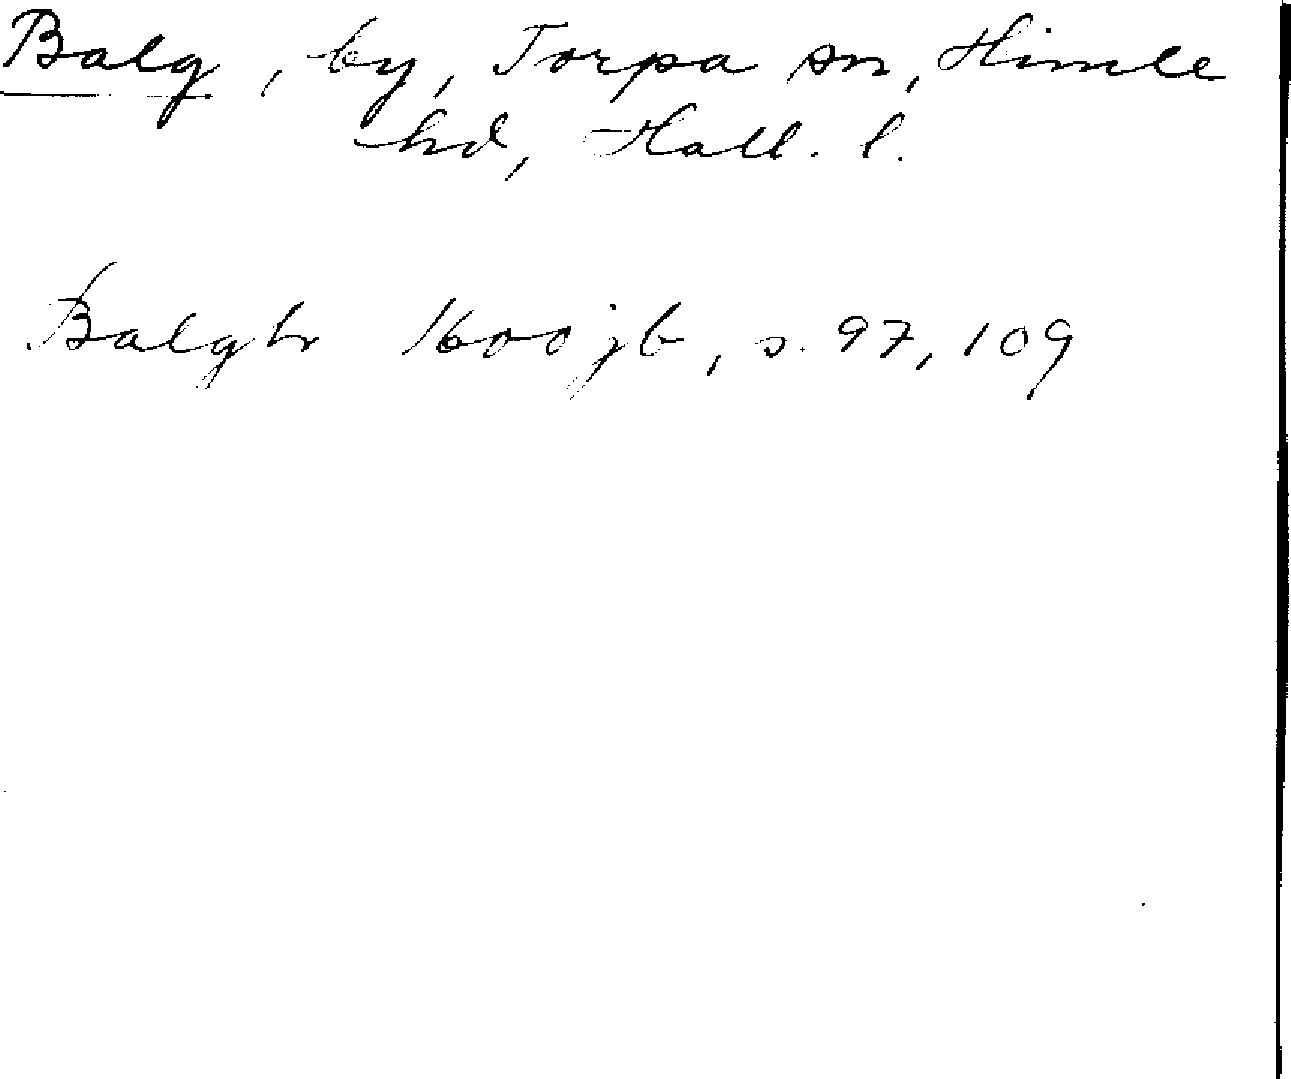 Balg, by, Torpa sn, Himle
hd, Hall. l.
Balgh 1600 jb, s. 97, 109